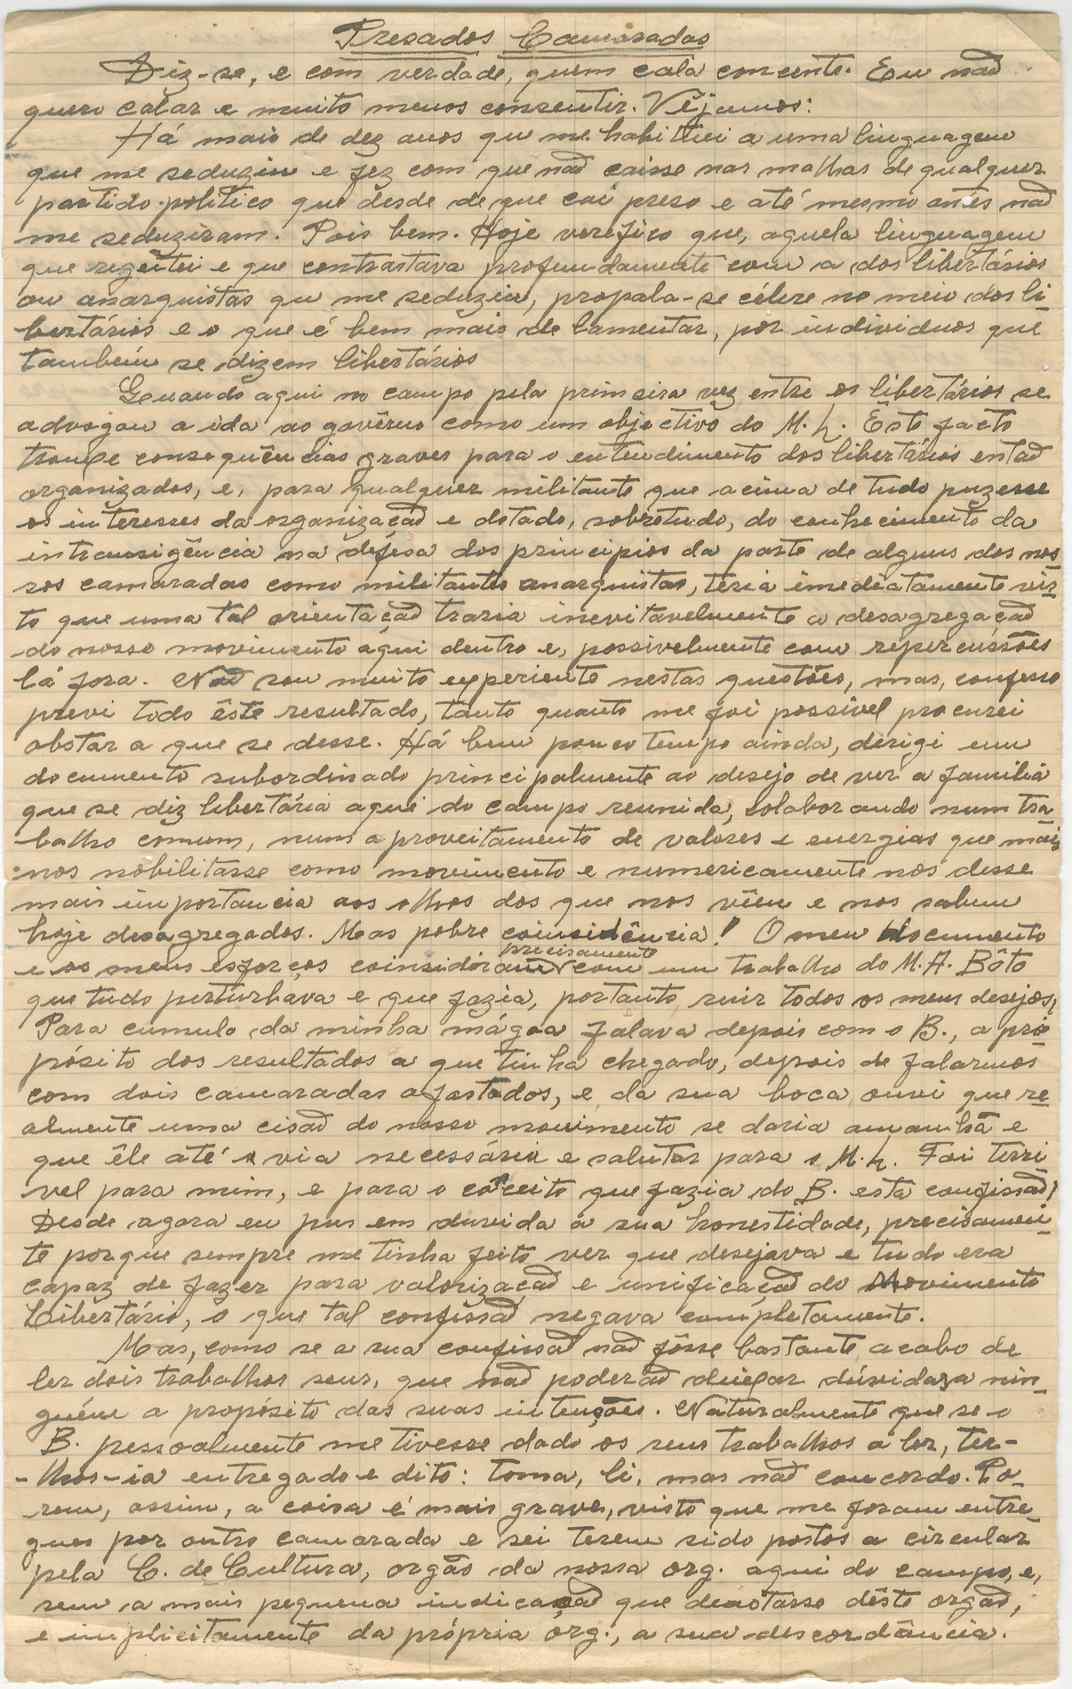 Presados Camaradas
Diz-se, e com verdade, quem cala concente. Eu não
quero calar e muito menos consentir. Vêjamos:
Há mais de dez anos que me habituei a uma linguagem
que me seduziu e fez com que não caisse nas malhas de qualquer
partido politico que desde de que caí preso e até mesmo antes não
me seduziram. Pois bem. Hoje verefico que, aquela linguagem
que regeitei e que contrastava profundamente com a dos libertários
ou anarquistas qu me seduziu, propala-se célere no meio dos li-
bertários e o que é bem mais de lamentar, por individuos que
também se dizem libertários
Quando aqui no campo pela primeira vez entre os libertários se
advogou a ida ao govêrno como um objectivo do M. L. Êste facto
trouxe consequências graves para o entendimento dos libertários então
organizados, e, para qualquer militante que acima de tudo puzesse
os interesses da organização e dotado, sobretudo, do conhecimento da
intransigência na defesa dos principios da parte de alguns dos nos-
sos camaradas como militantes anarquistas, teria imediatamente vis-
to que uma tal orientação traria inevitavelmente a desagregação
do nosso movimento aqui dentro e, possivelmente com repercussões
lá fora. Não sou muito experiente nestas questões, mas, confesso
previ todo êste resultado, tanto quanto me foi possivel procurei
obstar a que se desse. Há bem pouco tempo ainda, dirigi um
documento subordinado principalmente ao desejo de ver a familia
que se diz libertária aqui do campo reunida, colaborando num tra-
balho comum, num aproveitamento de valores e energias que mais
nos nobilitasse como movimento e numericamente nos desse
mais importancia aos olhos dos que nos vêem e nos sabem
hoje desagregados. Mas pobre coinsidência! O meu documento
e os meus esforços coinsidiram precisamente com um trabalho do M. A. Bôto
que tudo perturbava e que fazia, portanto, ruir todos os meus desejos,
Para cumulo da minha mágoa falava depois com o B., a pro-
pósito dos resultados a que tinha chegado, depois de falarmos
com dois camaradas afastados, e da sua boca ouvi que re-
almente uma cisão do nosso movimento se daria amanhã e
que êle até a via necessária e salutar para o M. L. Foi terri-
vel para mim, e para o conceito que fazia do B. esta confissão!
Desde agora eu pus em duvida a sua honestidade, precisamen-
te porque sempre me tinha feito ver que desejava e tudo era
capaz de fazer para valorização e unificação do Movimento
Libertário, o que tal confissão negava completamente.
Mas, como se a sua confissão não fôsse bastante acabo de
ler dois trabalhos seus, que não poderão deixar dúvidas a nin-
guém a propósito das suas intenções. Naturalmente que se o
B. pessoalmente me tivesse dado os seus trabalhos a ler, ter-
-lhos-ia entregado e dito: toma, li, mas não concordo. Po-
rem, assim, a coisa é mais grave, visto que me foram entre-
gues por outro camarada e sei terem sido postos a circular
pela C. de Cultura, orgão da nossa org. aqui do campo, e,
sem a mais pequena indicação que denotasse dêste orgão,
e implicitamente da própria org., a sua descordância.